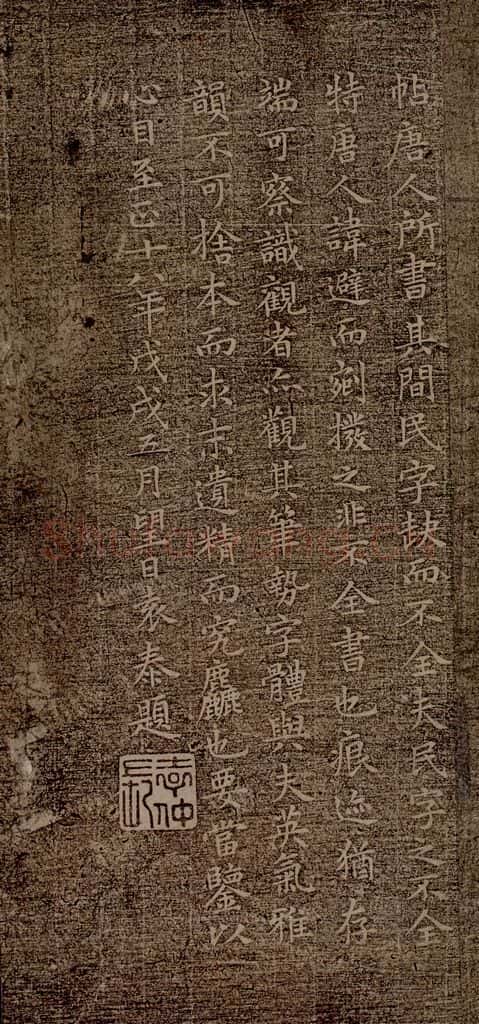 帖唐人所書其間民字缺而不全夫民字之不全
特唐人諱避而剜撥之非不全書也痕迹猶存
端可察識觀者亦觀其筆勢字體與夫英氣雅
韻不可捨本而求末遺精而究麤也要當鑒以
心目至正十八年戊戌五月望日袁泰題